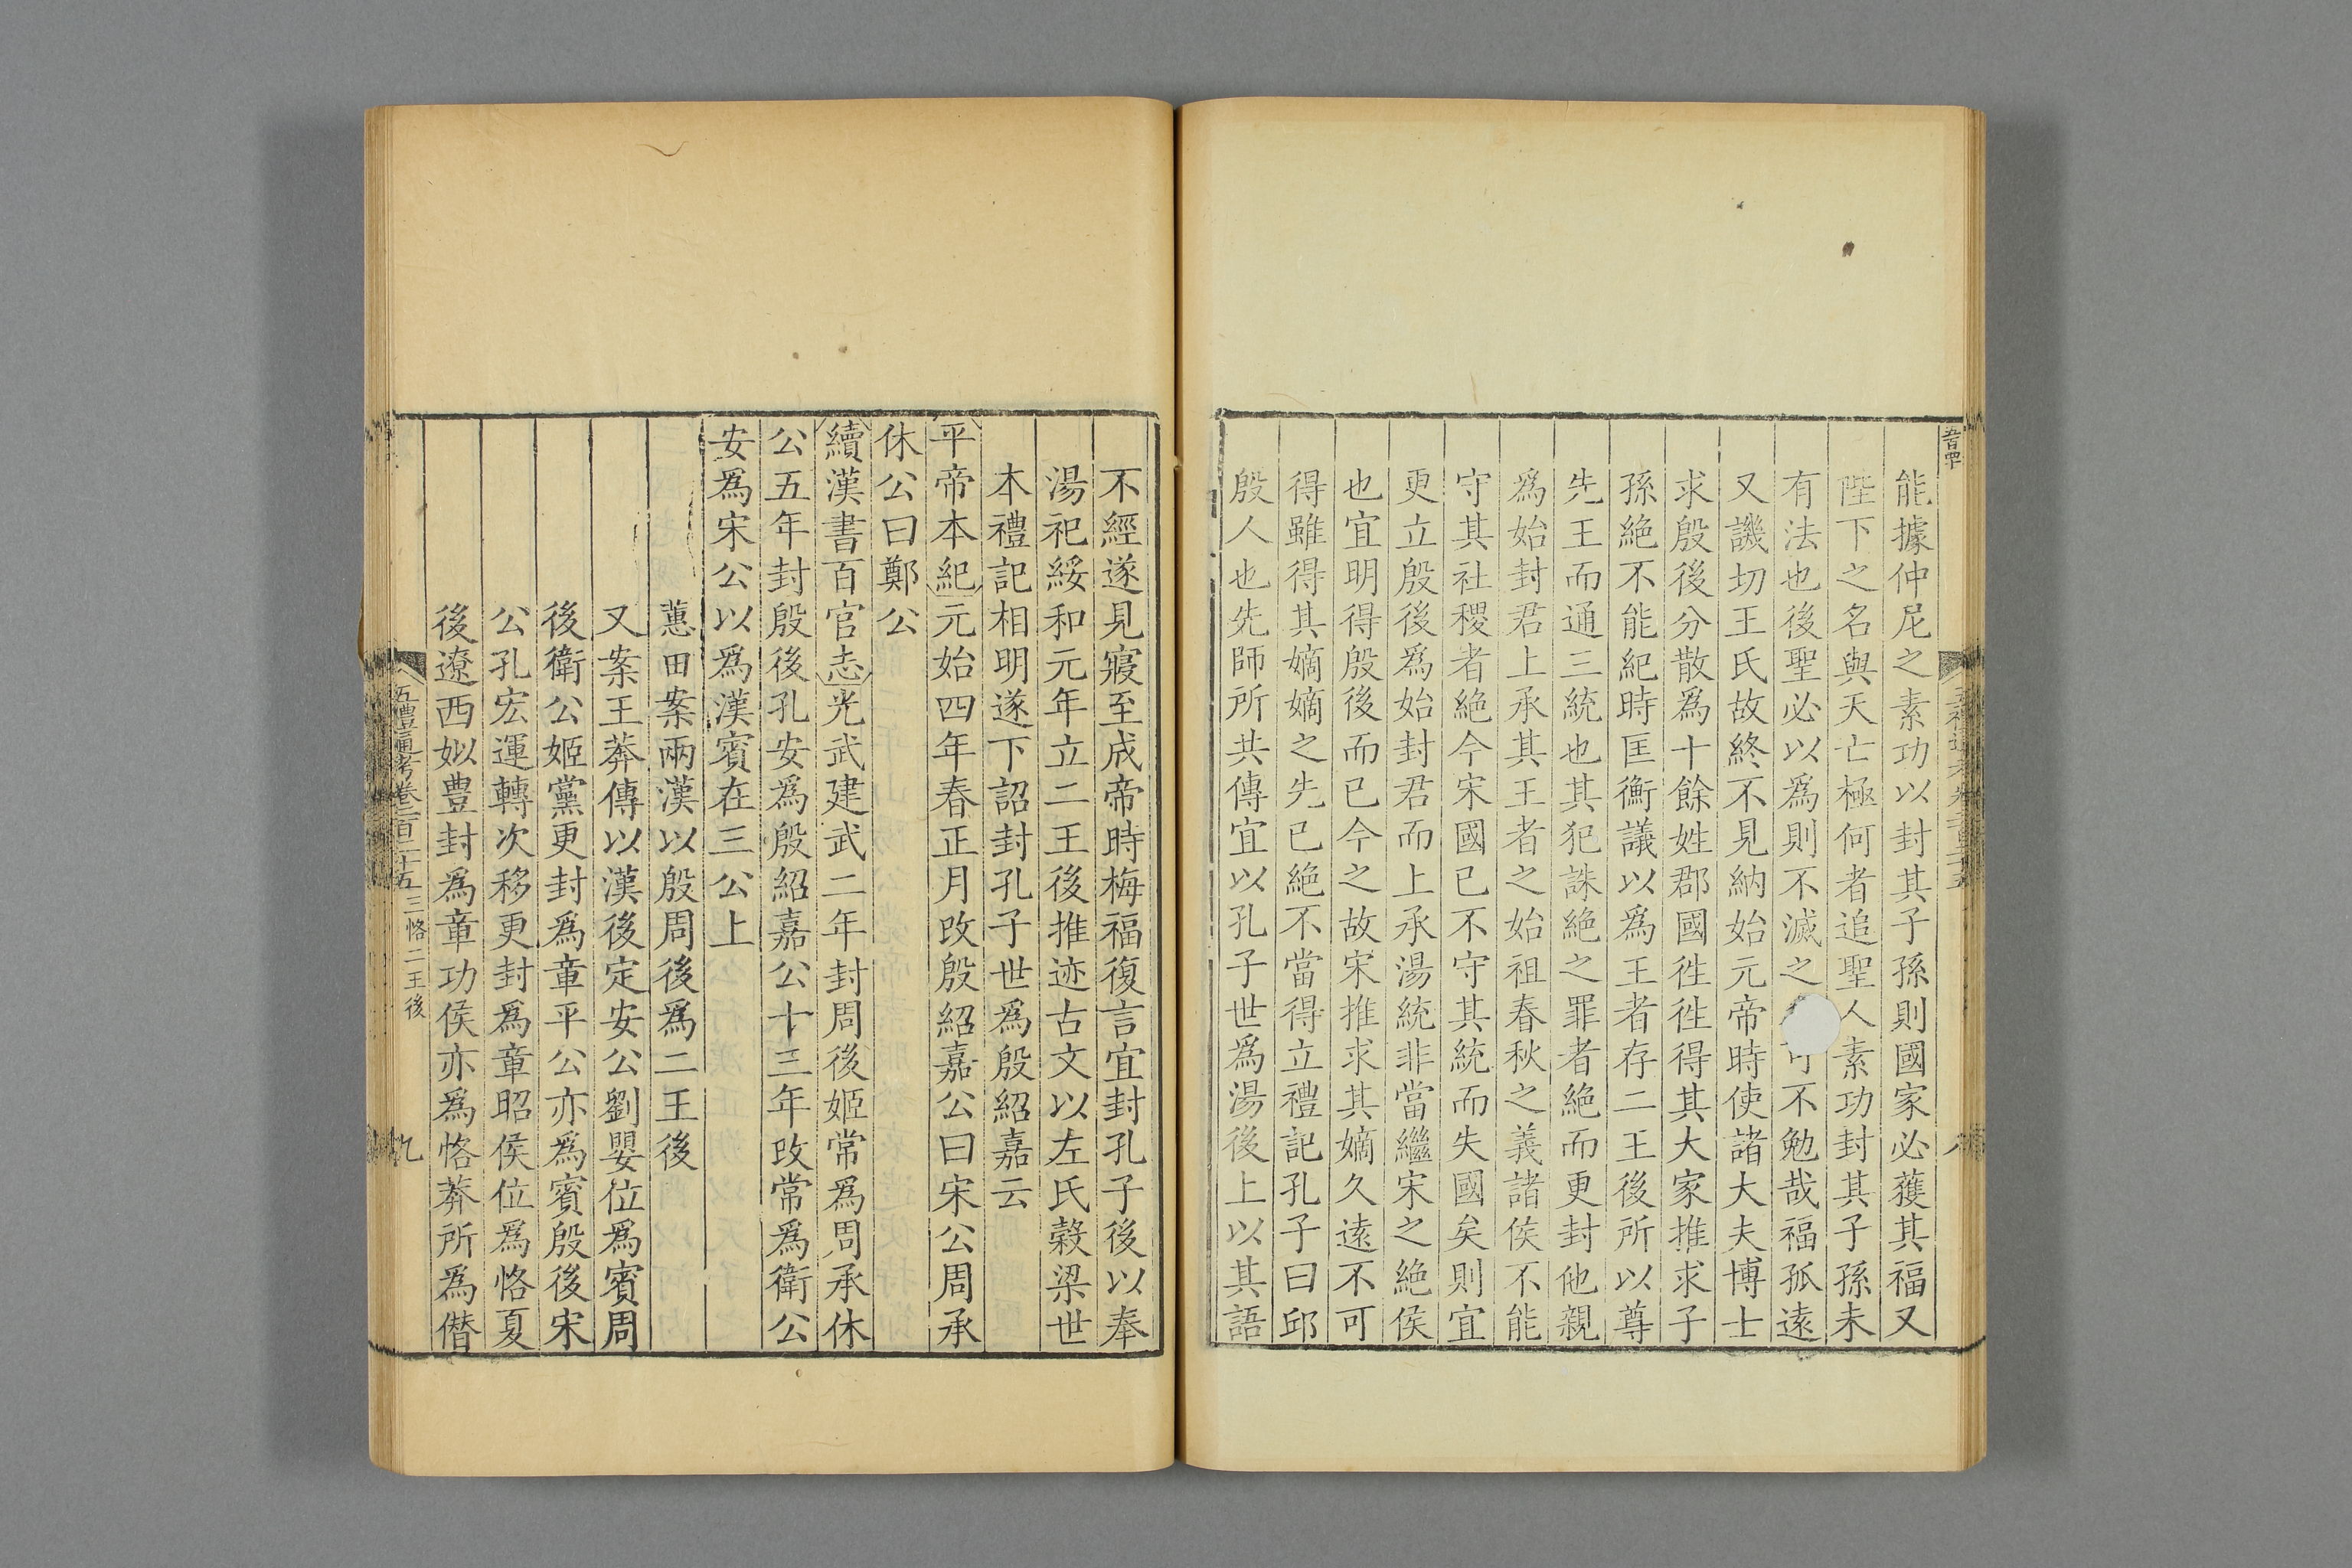 能據仲尼之素功以封其子孫則國家必獲其福又
陛下之名與天亡極何者追聖人素功封其子孫未
有法也後聖必以爲則不滅之可不勉哉福孤遠
又譏切王氏故終不見納始元帝時使諸大夫博士
求殷後分散爲十餘姓郡國徃徃得其大家推求子
孫絶不能紀時匡衡議以爲王者存二王後所以尊
先王而通三統也其犯誅絶之罪者絶而更封他親
爲始封君上承其王者之始祖春秋之義諸侯不能
守其社稷者絶今宋國已不守其統而失國矣則宜
更立殷後爲始封君而上承湯統非當繼宋之絶侯
也宜明得殷後而已今之故宋推求其嫡久遠不可
得雖得其嫡嫡之先已絶不當得立禮記孔子曰邱
殷人也先師所共傳宜以孔子世爲湯後上以其語
不經遂見寢至成帝時梅福復言宜封孔子後以奉
湯祀綏和元年立二王後推迹古文以左氏榖梁世
本禮記相明遂下詔封孔子世爲殷紹嘉云
平帝本紀元始四年春正月改殷紹嘉公曰宋公周承
休公曰鄭公
續漢書百官志光武建武二年封周後姬常爲周承休
公五年封殷後孔安爲殷紹嘉公十三年改常爲衛公
安爲宋公以爲漢賓在三公上
蕙田案兩漢以殷周後爲二王後
又案王莽傳以漢後定安公劉嬰位爲賓周
後衛公姬黨更封爲章平公亦爲賓殷後宋
公孔宏運轉次移更封爲章昭侯位爲恪夏
後遼西姒豊封爲章功侯亦爲恪莽所爲僭
五禮通考卷二百二十五 三恪二王後
九